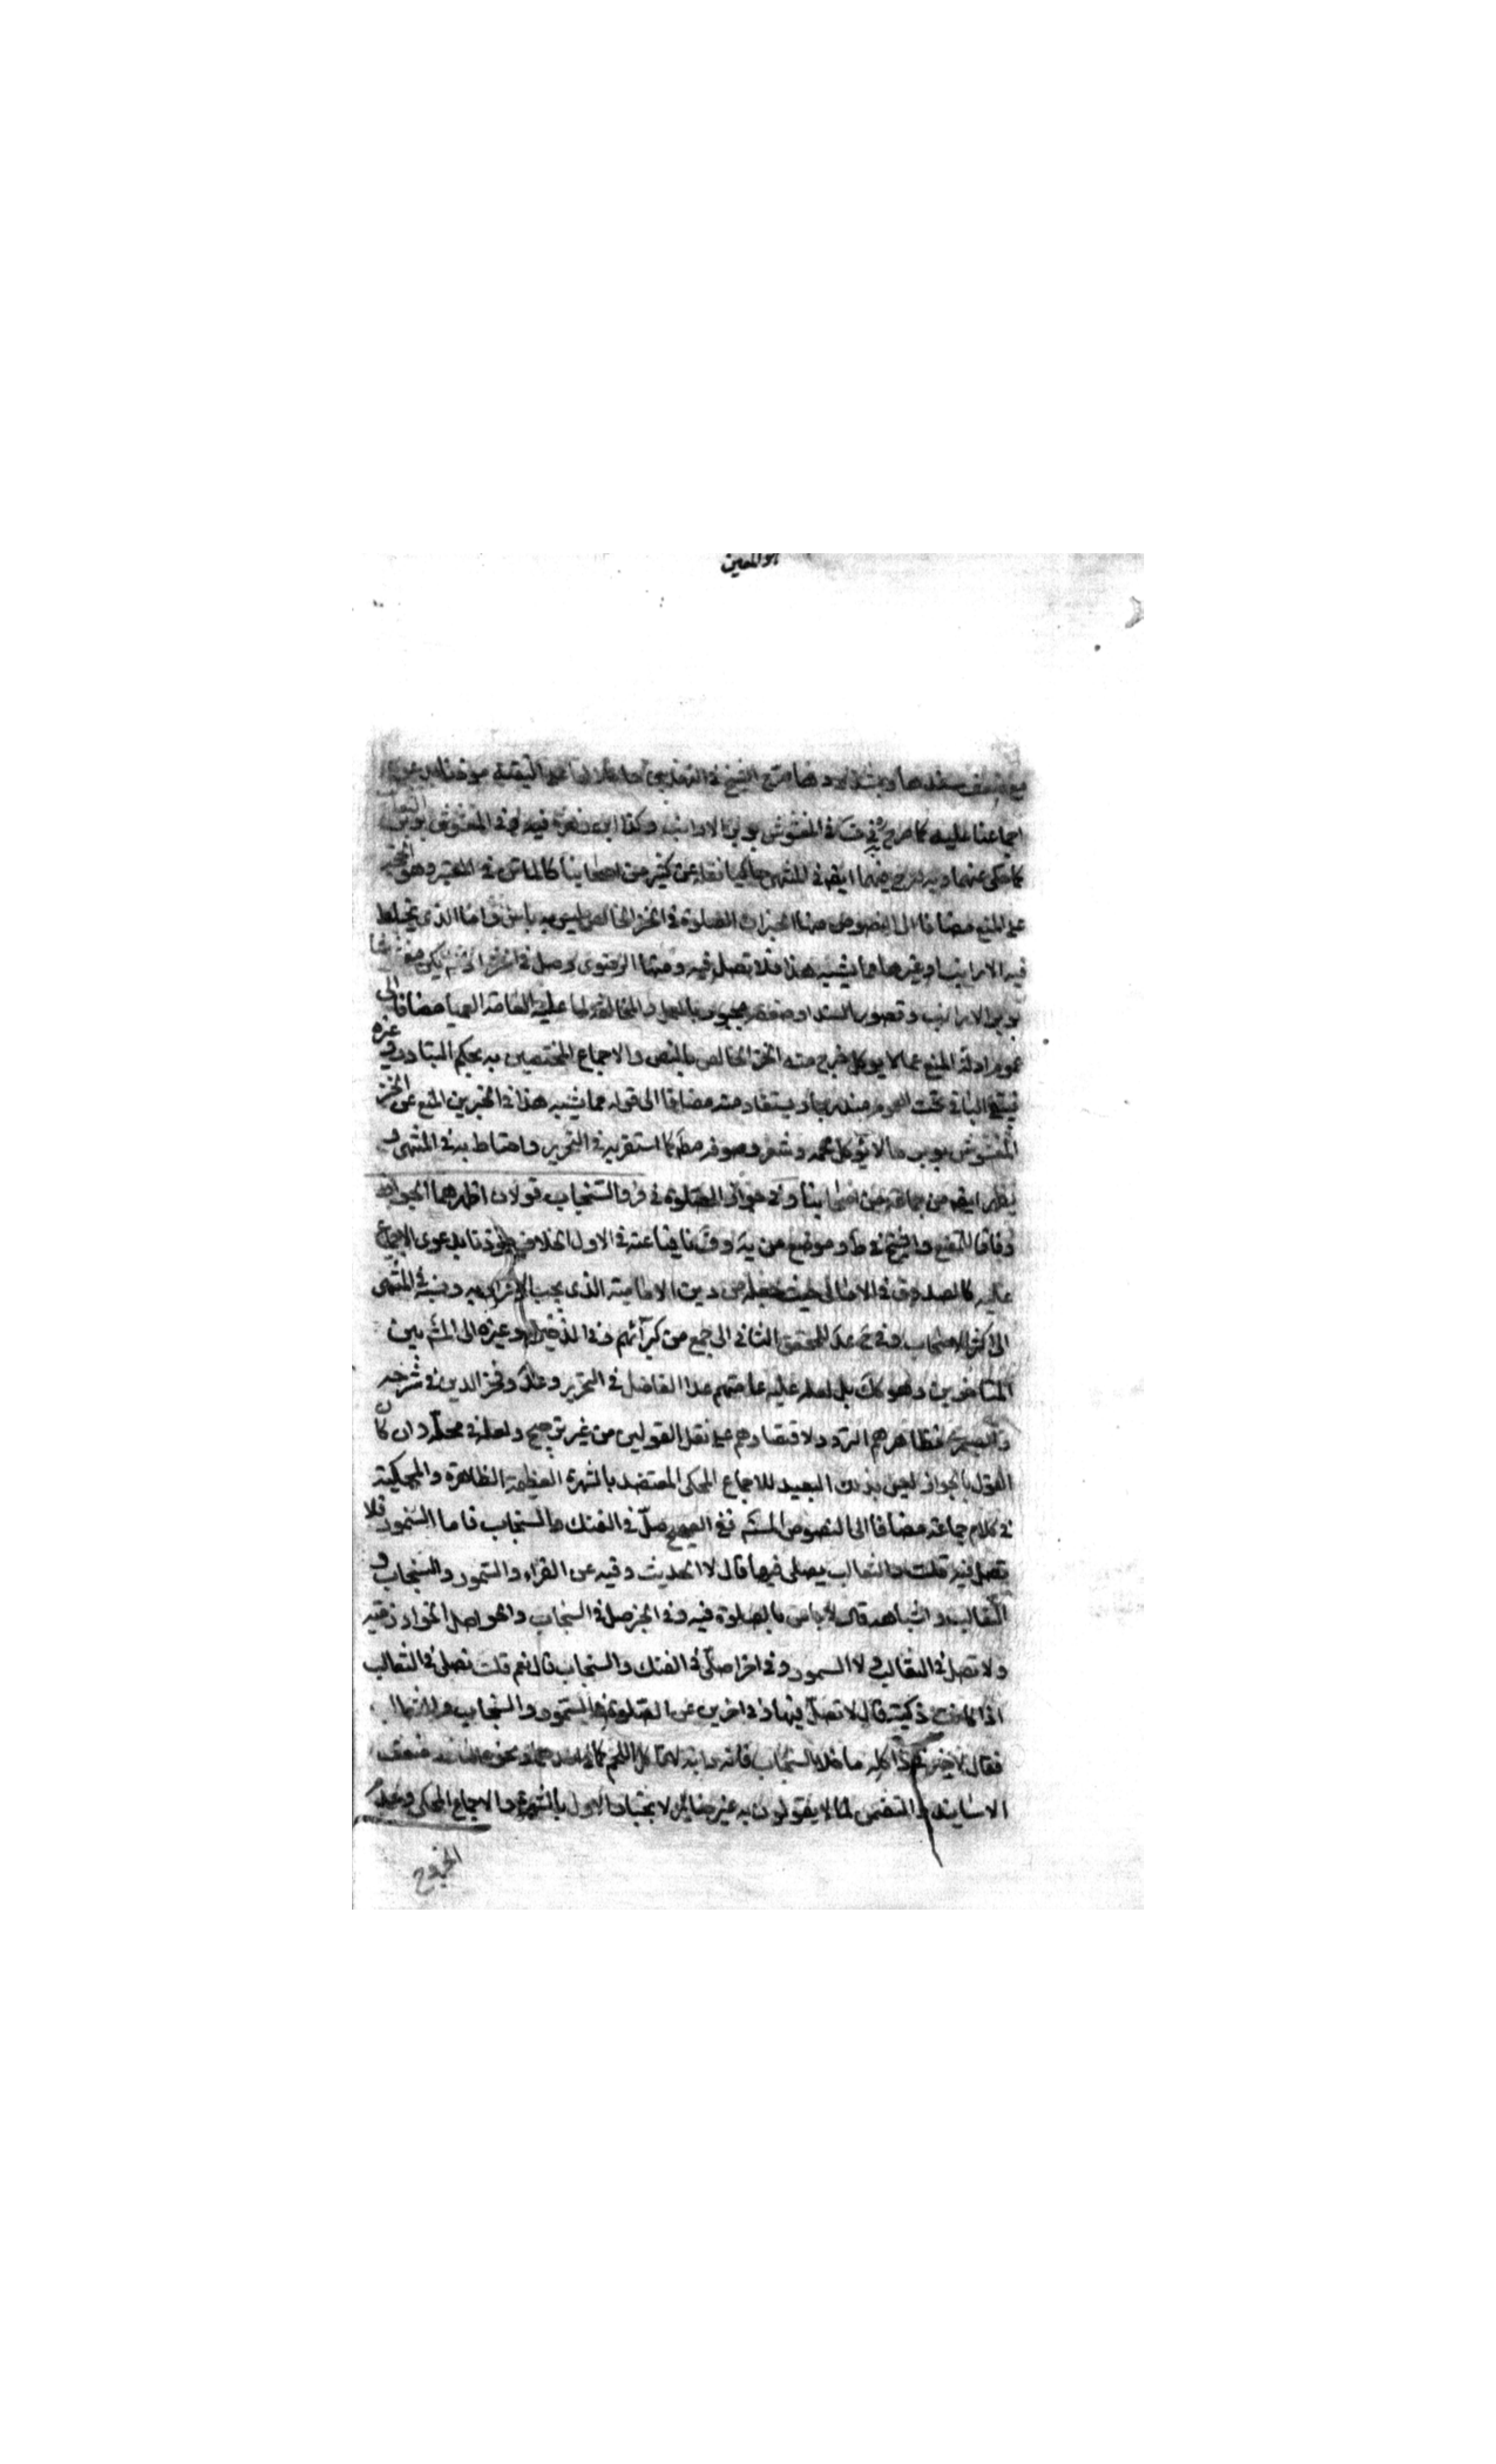 هو المعين
مع ضعف سندها وشذوذها صرح الشيخ في التهذيب على التقية
اجماعنا عليه كما صرح به في ف في المغشوش بوبر الارانب وكذا ابن زهرة فيه وفي المغشوش بوبر الثعالب
كما حكى عنهما وبه صرح فيهما ايضه في المنتهى حاكيا نقله عن كثير من اصحابنا كالماتن في المعتبر وهو الحجة
على المنع مضافا الى النصوص منها الخبران الصلوة في الخز الخالص ليس به باس واما الذي يخلط
فيه الارانب او غيرها مما يشبه هذا فلا تصل فيه ومنها الرضوى وصل في الخز اذا لم يكن مغشوشا
بوبر الارانب وقصور السند او ضعفه مجبور بالعمل والمخالفة لما عليه العامة العميا مضافا الى
عموم ادلة المنع عما لا يوكل خرج منه الخز الخالص بالنص والاجماع المختصين به بحكم التبادر في غيره
فيبقى الباقي تحت العموم مندرجا ويستفاد منه مضافا الى قوله مما يشبه هذا في الخبرين المنع عن الخز
المغشوش بوبر ما لا يوكل لحمه وشعره وصوفه مطلقا كما استقر به في التحرير واحتاط به في المنتهى و
يظهر ايضه من جماعة من اصحابنا وفي جواز الصلوة في فرو السنجاب قولان اظهرهما الجواز
وفاقا للمقنع والشيخ في ط وموضع من يه وف نافيا عنه في الاول الخلاف موذنا بدعوى الاجماع
عليه كالصدوق في الامالي حيث جعله من دين الامامية الذي يجب الاقرار به ونسبه في المنتهى
الى اكثر الاصحاب وفي شرح عد للمحقق الثاني الى جمع من كبرآئهم وفي الذخيرة وغيره الى المشهور بين
المتاخرين وهو كك بل لعله عليه عامتهم عدا الفاضل في التحرير وعد وفخر الدين في شرحه
والصيمري فظاهرهم التردد لاقتصارهم على نقل القولين من غير ترجيح ولعله في محله وان كان
القول بالجواز ليس بذلك البعيد للاجماع المحكى المعتضد بالشهرة العظيمة الظاهرة والمحكية
في كلام جماعة مضافا الى النصوص المستفيضة ففي الصحيح صل في الفنك والسنجاب فاما السمور فلا
تصل فيه قلت والثعالب يصلى فيها قال لا الحديث وفيه عن الفراء والسمور والسنجاب و
الثعالب واشباهه قال لا باس بالصلوة فيه وفي الخبر صل في السنجاب والحواصل الخوارزمية
ولا تصل في الثعالب ولا السمور وفي اخر اصلى في الفنك والسنجاب قال نعم قلت نصلى في الثعالب
اذا كانت ذكية قال لا تصل فيها وفي اخرين عن الصلوة في السمور والسنجاب والثعالب
فقال لا خير في ذا كله ما خلا السنجاب فانه دابة لا تاكل اللحم كما في احدهما ونحوه الثاني وضعف
الاسانيد والتضمن لما لا يقولون به غير ضائر لانجبار الاول بالشهرة والاجماع المحكى وعدم
الخروج